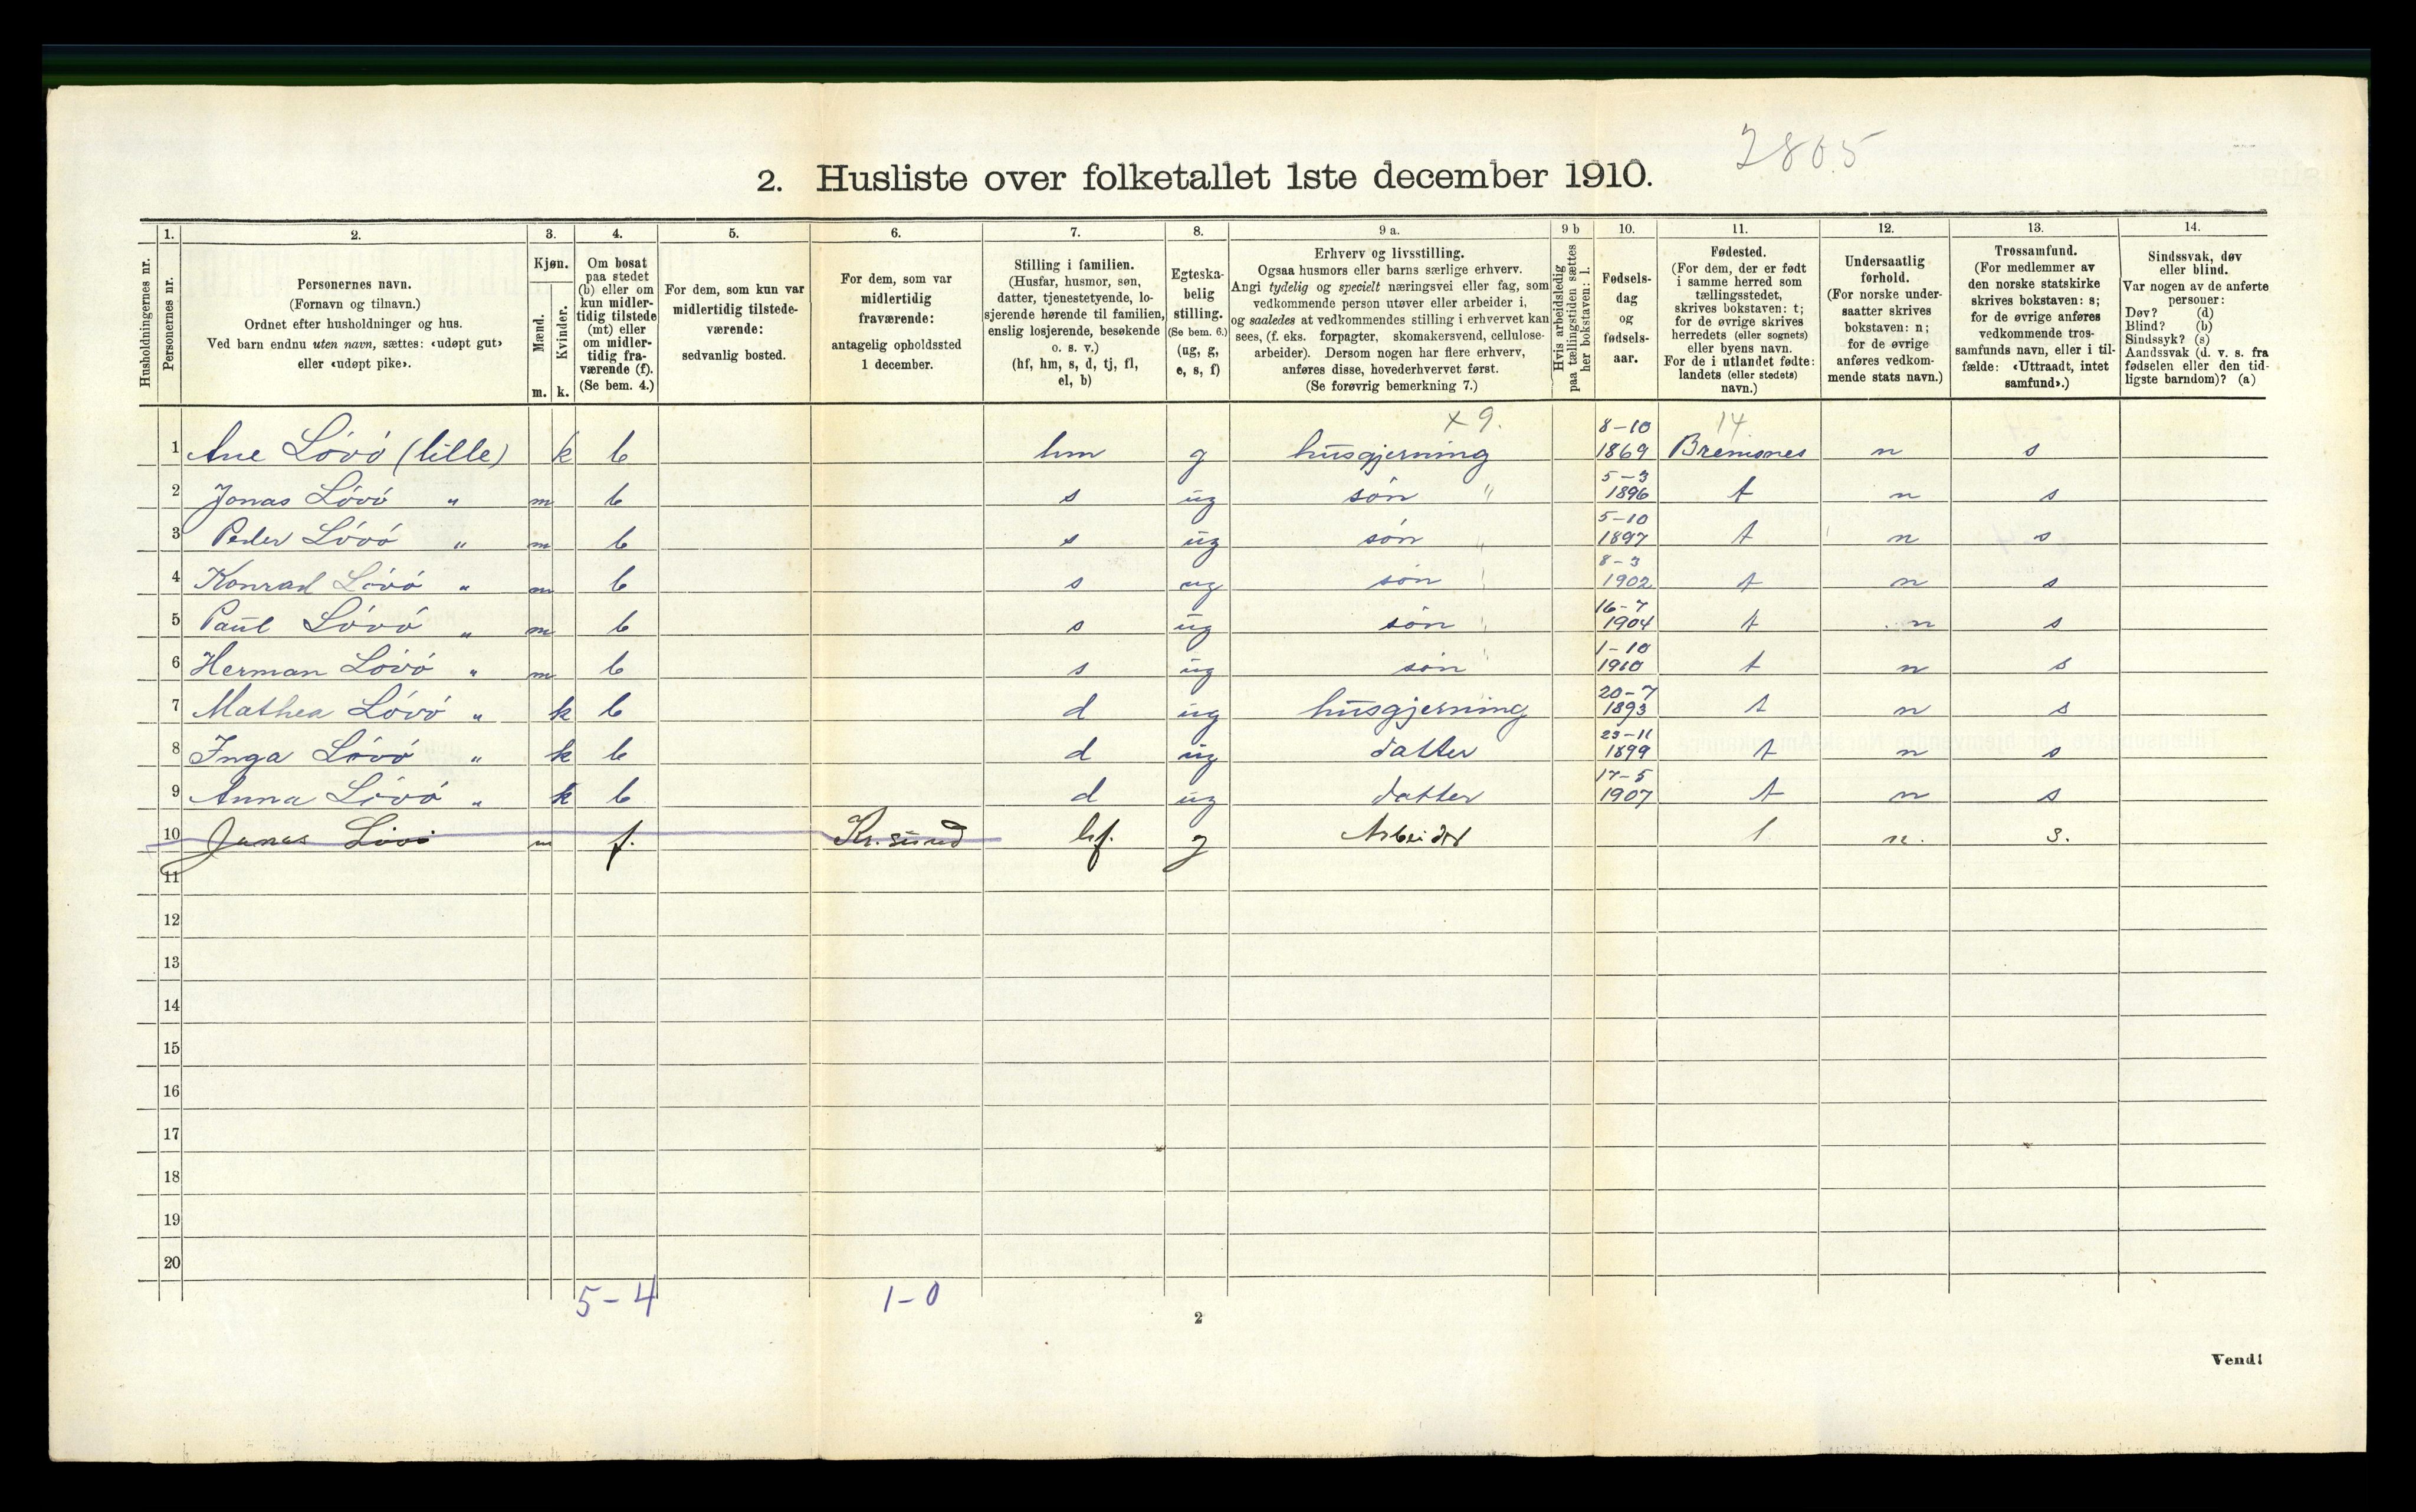 2805
2. Husliste over folketallet 1ste december 1910.
Husholdningernes nr.
1.
Personernes nr.
2.
Personernes navn.
(Fornavn og tilnavn.)
Ordnet efter husholdninger og hus.
Ved barn endnu uten navn, sættes: «udøpt gut»
eller «udøpt pike».
3.
Kjøn.
Mænd.
Kvinder.
m. k.
4.
Om bosat
paa stedet
(b) eller om
kun midler-
tidig tilstede
(mt) eller
om midler-
tidig fra-
værende (f).
(Se bem. 4.)
5.
For dem, som kun var
midlertidig tilstede-
værende:
sedvanlig bosted.
6.
For dem, som var
midlertidig
fraværende:
antagelig opholdssted
1 december.
7.
Stilling i familien.
(Husfar, husmor, søn,
datter, tjenestetyende, lo-
sjerende hørende til familien,
enslig losjerende, besøkende
o. s. v.)
(hf, hm, s, d, tj, fl,
el, b)
8.
Egteska-
belig
stilling.
(Se bem. 6.)
(ug, g,
e, s, f)
9 a.
Erhverv og livsstilling.
Ogsaa husmors eller barns særlige erhverv.
Angi tydelig og specielt næringsvei eller fag, som
vedkommende person utøver eller arbeider i,
og saaledes at vedkommendes stilling i erhvervet kan
sees, (f. eks. forpagter, skomakersvend, cellulose-
arbeider). Dersom nogen har flere erhverv,
anføres disse, hovederhvervet først.
(Se forøvrig bemerkning 7.)
9 b
Hvis arbeidsledig
paa tællingstiden sættes
her bokstaven: l.
10.
Fødsels-
dag
og
fødsels-
aar.
11.
Fødested.
(For dem, der er født
i samme herred som
tællingsstedet,
skrives bokstaven: t;
for de øvrige skrives
herredets (eller sognets)
eller byens navn.
For de i utlandet fødte:
landets (eller stedets)
navn.)
12.
Undersaatlig
forhold.
(For norske under-
saatter skrives
bokstaven: n;
for de øvrige
anføres vedkom-
mende stats navn.)
13.
Trossamfund.
(For medlemmer av
den norske statskirke
skrives bokstaven: s;
for de øvrige anføres
vedkommende tros-
samfunds navn, eller i til-
fælde: «Uttraadt, intet
samfund».)
14.
Sindssvak, døv
eller blind.
Var nogen av de anførte
personer:
Døv? (d)
Blind? (b)
Sindssyk? (s)
Aandssvak (d. v. s. fra
fødselen eller den tid-
ligste barndom)? (a)
x 9. 14
1 Ane Lóvó (lille) k b hm g husgjerning 8-10 1869 Bremsnes n s
2 Jonas Lóvó " m b s ug són " 5-3 1896 t n s
3 Peder Lóvó " m b s ug són " 5-10 1897 t n s
4 Konrad Lóvó " m b s ug són " 8-3 1902 t n s
5 Paul Lóvó " m b s ug són " 16-7 1904 t n s
6 Herman Lóvó " m b s ug són " 1-10 1910 t n s
7 Mathea Lóvó " k b d ug husgjerning 20-7 1893 t n s
8 Inga Lóvó " k b d ug datter 23-11 1899 t n s
9 Anna Lóvó " k b d ug datter 17-5 1907 t n s
10 Lóvó m f. Kr.sund hf. g Arbeider n. s.
11
12
13
14
15
16
17
18
19
20
5-4 1-0
2
Vend!